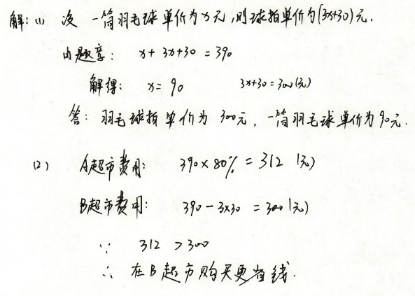 解:(1) 设 一筒羽毛球单价为x元,则球拍单价为(3x+30)元.
由题意: x+3x+30=390
解得: x=90 3x+30=300(元)
答: 羽毛球拍单价为 300元, 一筒羽毛球单价为90元.
(2) A超市费用: 390×80%=312(元)
B超市费用: 390-3×30=300(元)
∵ 312>300
∴ 在B超市购买更省钱.